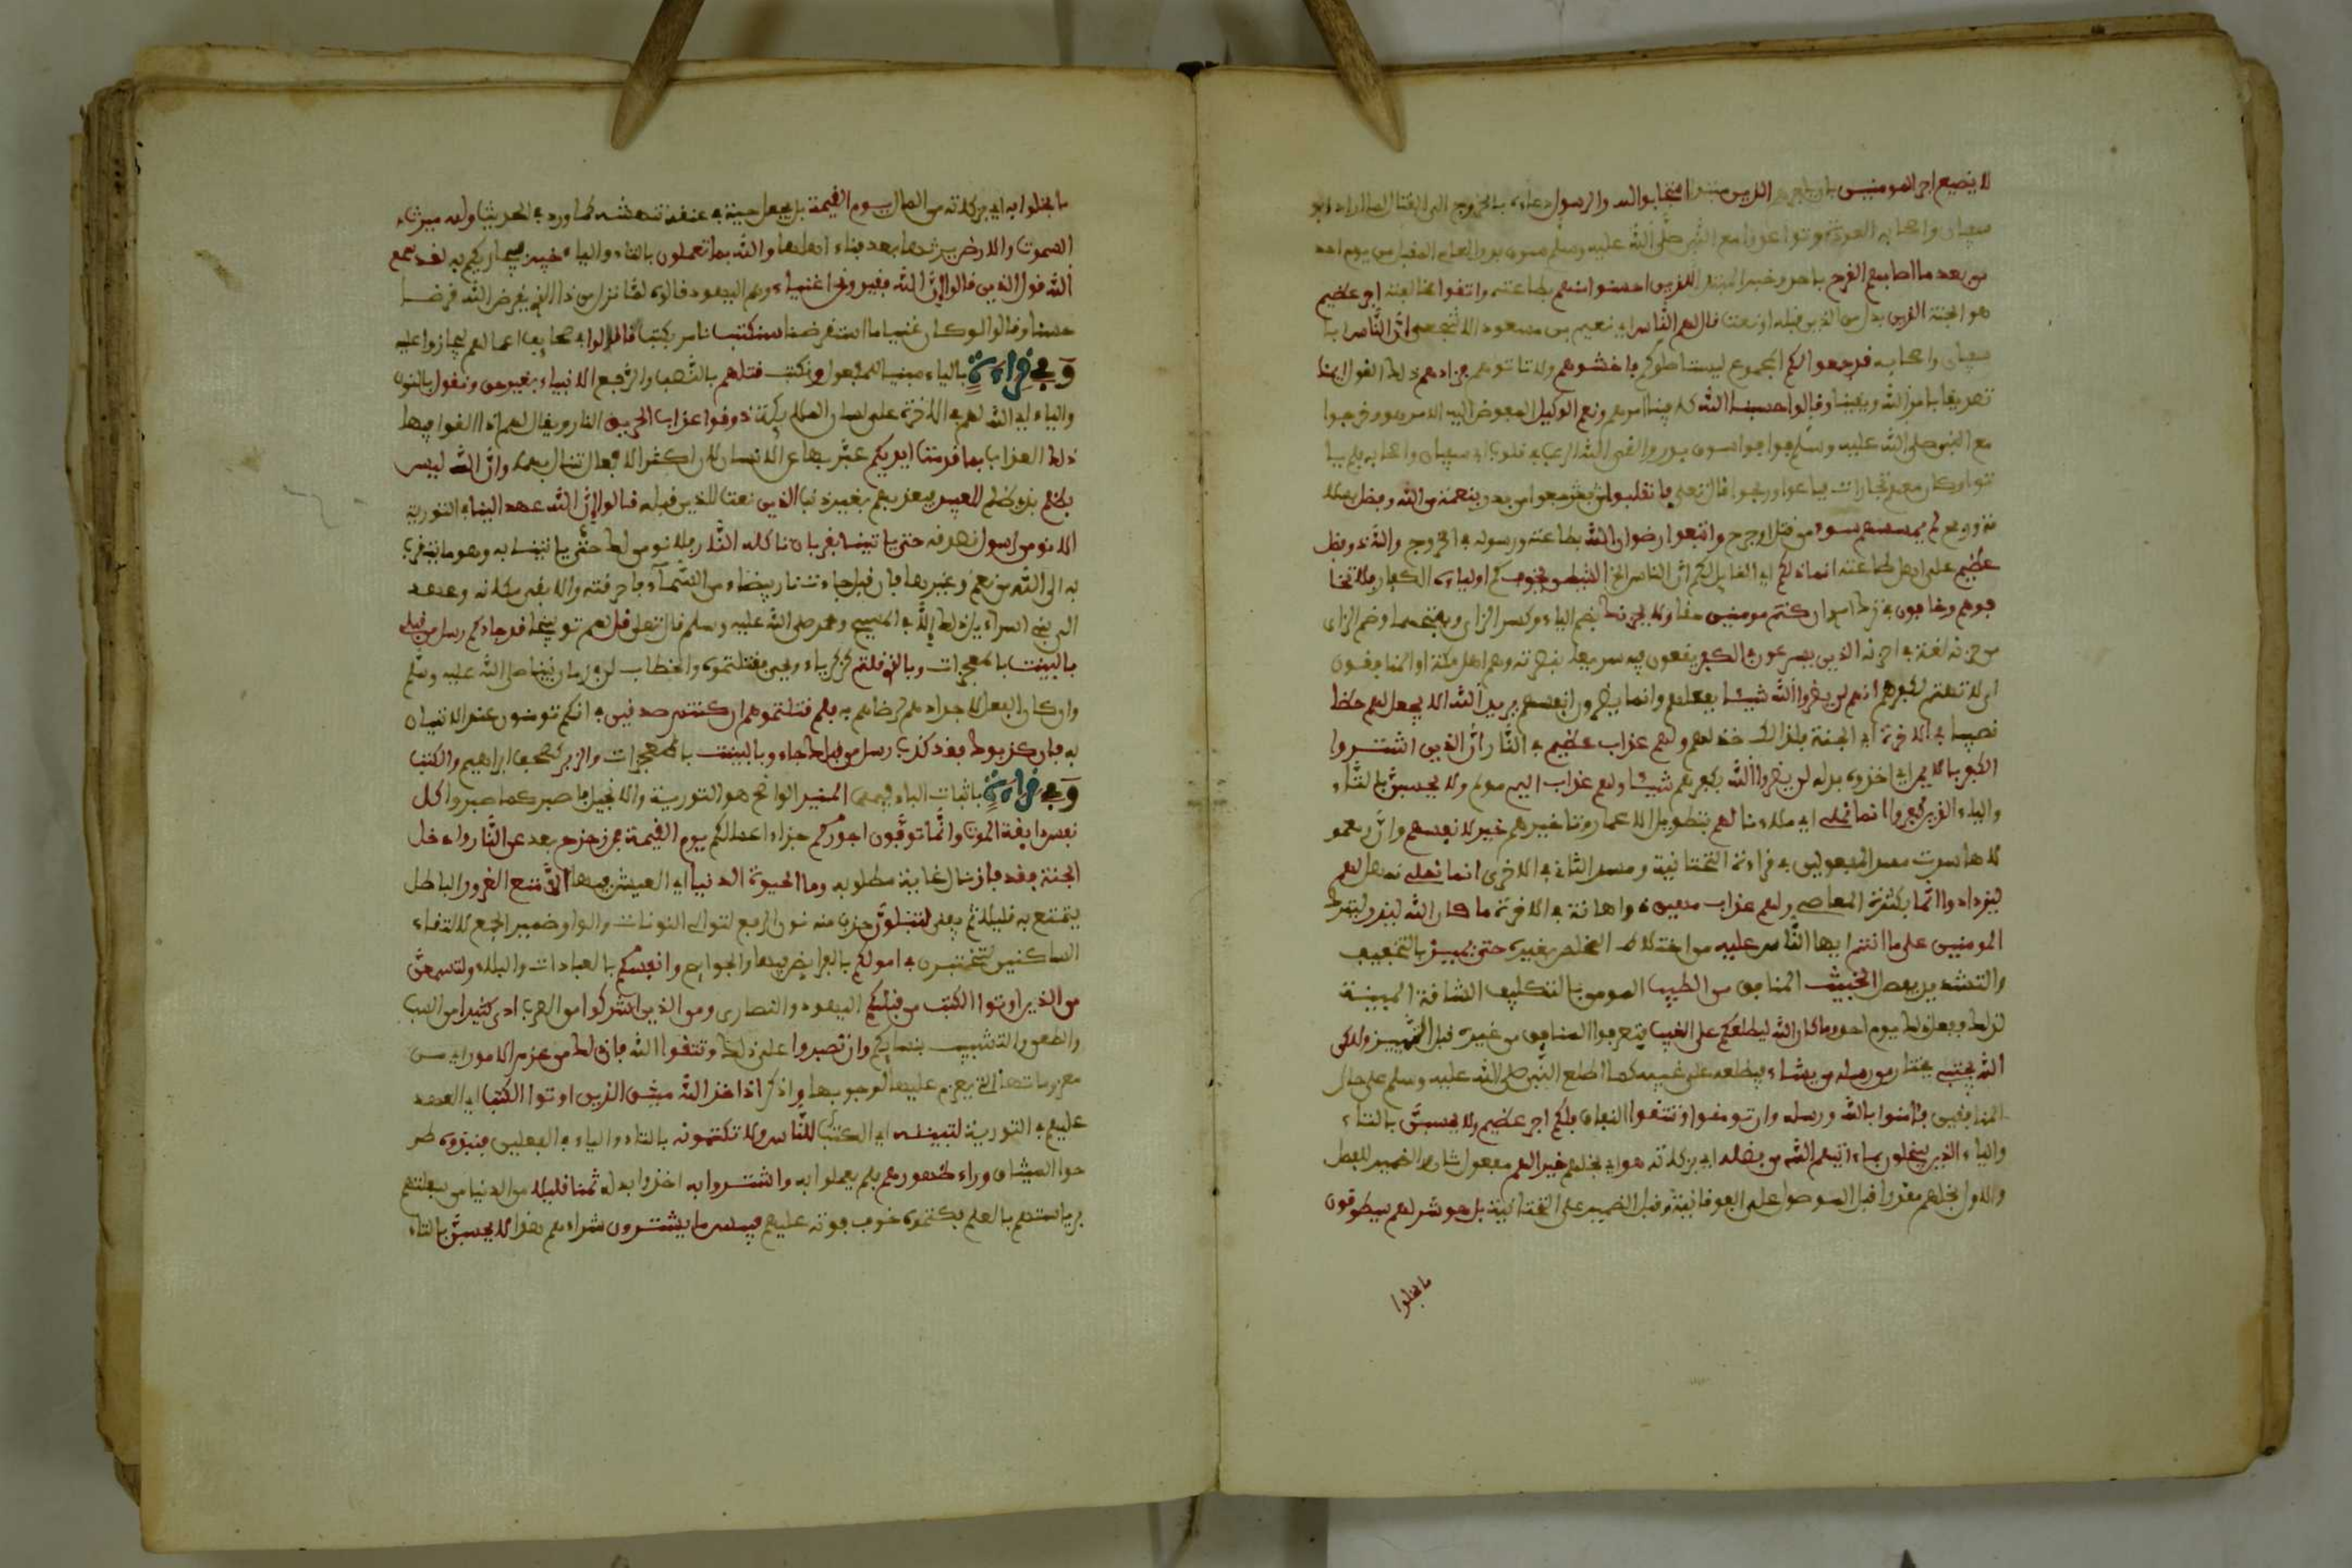 لا يضيع اجر المومنين بل ياجرهم الذين مبتدا استجابوا لله والرسول دعاءه بالخروج الى القتال لما اراد ابو
سفيان واصحابه العودة وتواعدوا مع النبي صلى الله عليه وسلم سوق بدر العام المقبل من يوم احد
من بعد ما اصابهم القرح باحد وخبر المبتدا للذين احسنوا منهم بطاعته واتقوا مخالفته اجر عظيم
هو الجنة الذين بدل من الذين قبله او نعت قال لهم الناس اي نعيم بن مسعود الاشجعي ان الناس ابا
سفيان واصحابه قد جمعوا لكم الجموع ليستاصلوكم فاخشوهم ولا تاتوهم فزادهم ذلك القول ايمنا
تصديقا بالله ويقينا وقالوا حسبنا الله كافينا امرهم ونعم الوكيل المفوض اليه الامر هو وخرجوا
مع النبي صلى الله عليه وسلم فوافوا سوق بدر والقى الله الرعب في قلوب ابي سفيان واصحابه فلم يا
توا وكان معهم تجارات فباعوا وربحوا قال تعلى فانقلبوا رجعوا من بدر بنعمة من الله وفضل بسلا
مة وربح لم يمسسهم سوء من قتل او جرح واتبعوا رضوان الله بطاعته ورسوله في الخروج والله ذو فضل
عظيم على اهل طاعته انما ذلكم اي القايل لكم ان الناس الخ الشيطن يخوف كم اولياءه الكفار فلا تخا
فوهم وخافون في ترك امري ان كنتم مومنين حقا ولا يحزنك بضم الياء وكسر الزاي وبفتحها وضم الزاي
من حزنه لغة في احزنه الذين يسرعون في الكفر يقعون فيه سريعا بنصرته وهم اهل مكة او المنافقون
اي لا تهتم لكفرهم انهم لن يضروا الله شيئا بفعلهم وانما يضرون انفسهم يريد الله الا يجعل لهم حظا
نصيبا في الاخرة اي الجنة فلذلك خذلهم ولهم عذاب عظيم في النار ان الذين اشتروا
الكفر بالايمان اي اخذوه بدله لن يضروا الله بكفرهم شيئا ولهم عذاب اليم مولم ولا يحسبن بالتاء
والياء الذين كفروا انما نملي اي ملاءنا لهم بتطويل الاعمار وتاخيرهم خير لانفسهم وان ومعمو
لاها سدت مسد المفعولين في قراءة التحتانية ومسد الثاني في الاخرى انما نملي نمهل لهم
ليزدادوا اثما بكثرة المعاصي ولهم عذاب مهين ذو اهانة في الاخرة ما كان الله ليذر ليترك
المومنين على ما انتم ايها الناس عليه من اختلاط المخلص بغيره حتى يميز بالتخفيف
والتشديد يفصل الخبيث المنافق من الطيب المومن بالتكليف الشاقة المبينة
لذلك ففعل ذلك يوم احد وما كان الله ليطلعكم على الغيب فتعرفوا المنافق من غيره قبل التمييز ولكن
الله يجتبي يختار من رسله من يشاء فيطلعه على غيبه كما اطلع النبي صلى الله عليه وسلم على حال
المنافقين فامنوا بالله ورسله وان تومنوا وتتقوا النفاق فلكم اجر عظيم ولا يحسبن بالتاء
والياء الذين يبخلون بما اتيهم الله من فضله اي بزكاته هو اي بخلهم خيرا لهم مفعول ثان والضمير للفصل
والاول بخلهم مقدرا قبل الموصول على الفوقانية وقبل الضمير على التحتانية بل هو شر لهم سيطوقون
ما بخلوا
ما بخلوا به اي بزكاته من المال يوم القيمة بل يجعل حية في عنقه تنهشه كما ورد في الحديث ولله ميرث
السموت والارض يرثهما بعد فناء اهلهما والله بما تعملون بالتاء والياء خبير فيجازيكم به لقد سمع
الله قول الذين قالوا ان الله فقير ونحن اغنياء وهم اليهود قالوه لما نزل من ذا الذي يقرض الله قرضا
حسنا وقالوا لو كان غنيا ما استقرضنا سنكتب نامر بكتب ما قالوا في صحايف اعمالهم ليجازوا عليه
وفي قراءة بالياء مبنيا للمفعول ونكتب قتلهم بالنصب والرفع الانبياء بغير حق ونقول بالنون
والياء اي الله لهم في الاخرة على لسان الملايكة ذوقوا عذاب الحريق النار ويقال لهم اذا القوا فيها
ذلك العذاب بما قدمت ايديكم عبر بها عن الانسان لان اكثر الافعال تنال بهما وان الله ليس
بظلم بذي ظلم للعبيد فيعذبهم بغير ذنب الذين نعت للذين قبله قالوا ان الله عهد الينا في التورية
الا نومن لرسول نصدقه حتى ياتينا بقربان تاكله النار فلا نومن لك حتى ياتينا به وهو ما يتقرب
به الى الله من نعم وغيرها فان قبل جاءت نار بيضاء من السماء فاحرقته والا بقي مكانه وعهد
الى بني اسراءيل ذلك الا في المسيح ومحمد صلى الله عليه وسلم قال تعلى قل لهم توبيخا قد جاءكم رسل من قبلي
بالبينت بالمعجزات وبالذي قلتم كزكرياء ويحيى فقتلتموه والخطاب لمن في زمان نبينا صلى الله عليه وسلم
وان كان الفعل لاجدادهم لرضاهم به فلم قتلتموهم ان كنتم صدقين في انكم تومنون عند الاتيان
به فان كذبوك فقد كذب رسل من قبلك جاءو بالبينت بالمعجزات والزبر كصحف ابراهيم والكتب
وفي قراءة باثبات الباء فيهما المنير الواضح هو التورية والانجيل فاصبر كما صبروا كل
نفس ذايقة الموت وانما توفون اجوركم جزاء اعمالكم يوم القيمة فمن زحزح بعد عن النار وادخل
الجنة فقد فاز نال غاية مطلوبه وما الحيوة الدنيا اي العيش فيها الا متع الغرور الباطل
يتمتع به قليلا ثم يفنى لتبلون حذف منه نون الرفع لتوالي النونات والواو ضمير الجمع لالتقاء
الساكنين لتختبرن في امولكم بالفرايض فيها والجوايح وانفسكم بالعبادات والبلاء ولتسمعن
من الذين اوتوا الكتب من قبلكم اليهود والنصارى ومن الذين اشركوا من العرب اذى كثيرا من السب
والطعن والتشبيب بنسايكم وان تصبروا على ذلك وتتقوا الله فان ذلك من عزم الامور اي من
معزوماتها التي يعزم عليها لوجوبها واذكر اذ اخذ الله ميثق الذين اوتوا الكتب اي العهد
عليهم في التورية لتبيننه اي الكتب للناس ولا تكتمونه بالتاء والياء في الفعلين فنبذوه طر
حوا الميثاق وراء ظهورهم فلم يعملوا به واشتروا به اخذوا بدله ثمنا قليلا من الدنيا من سفلتهم
برياستهم بالعلم فكتموه خوف فوته عليهم فبيس ما يشترون شراءهم هذا لا يحسبن بالتاء